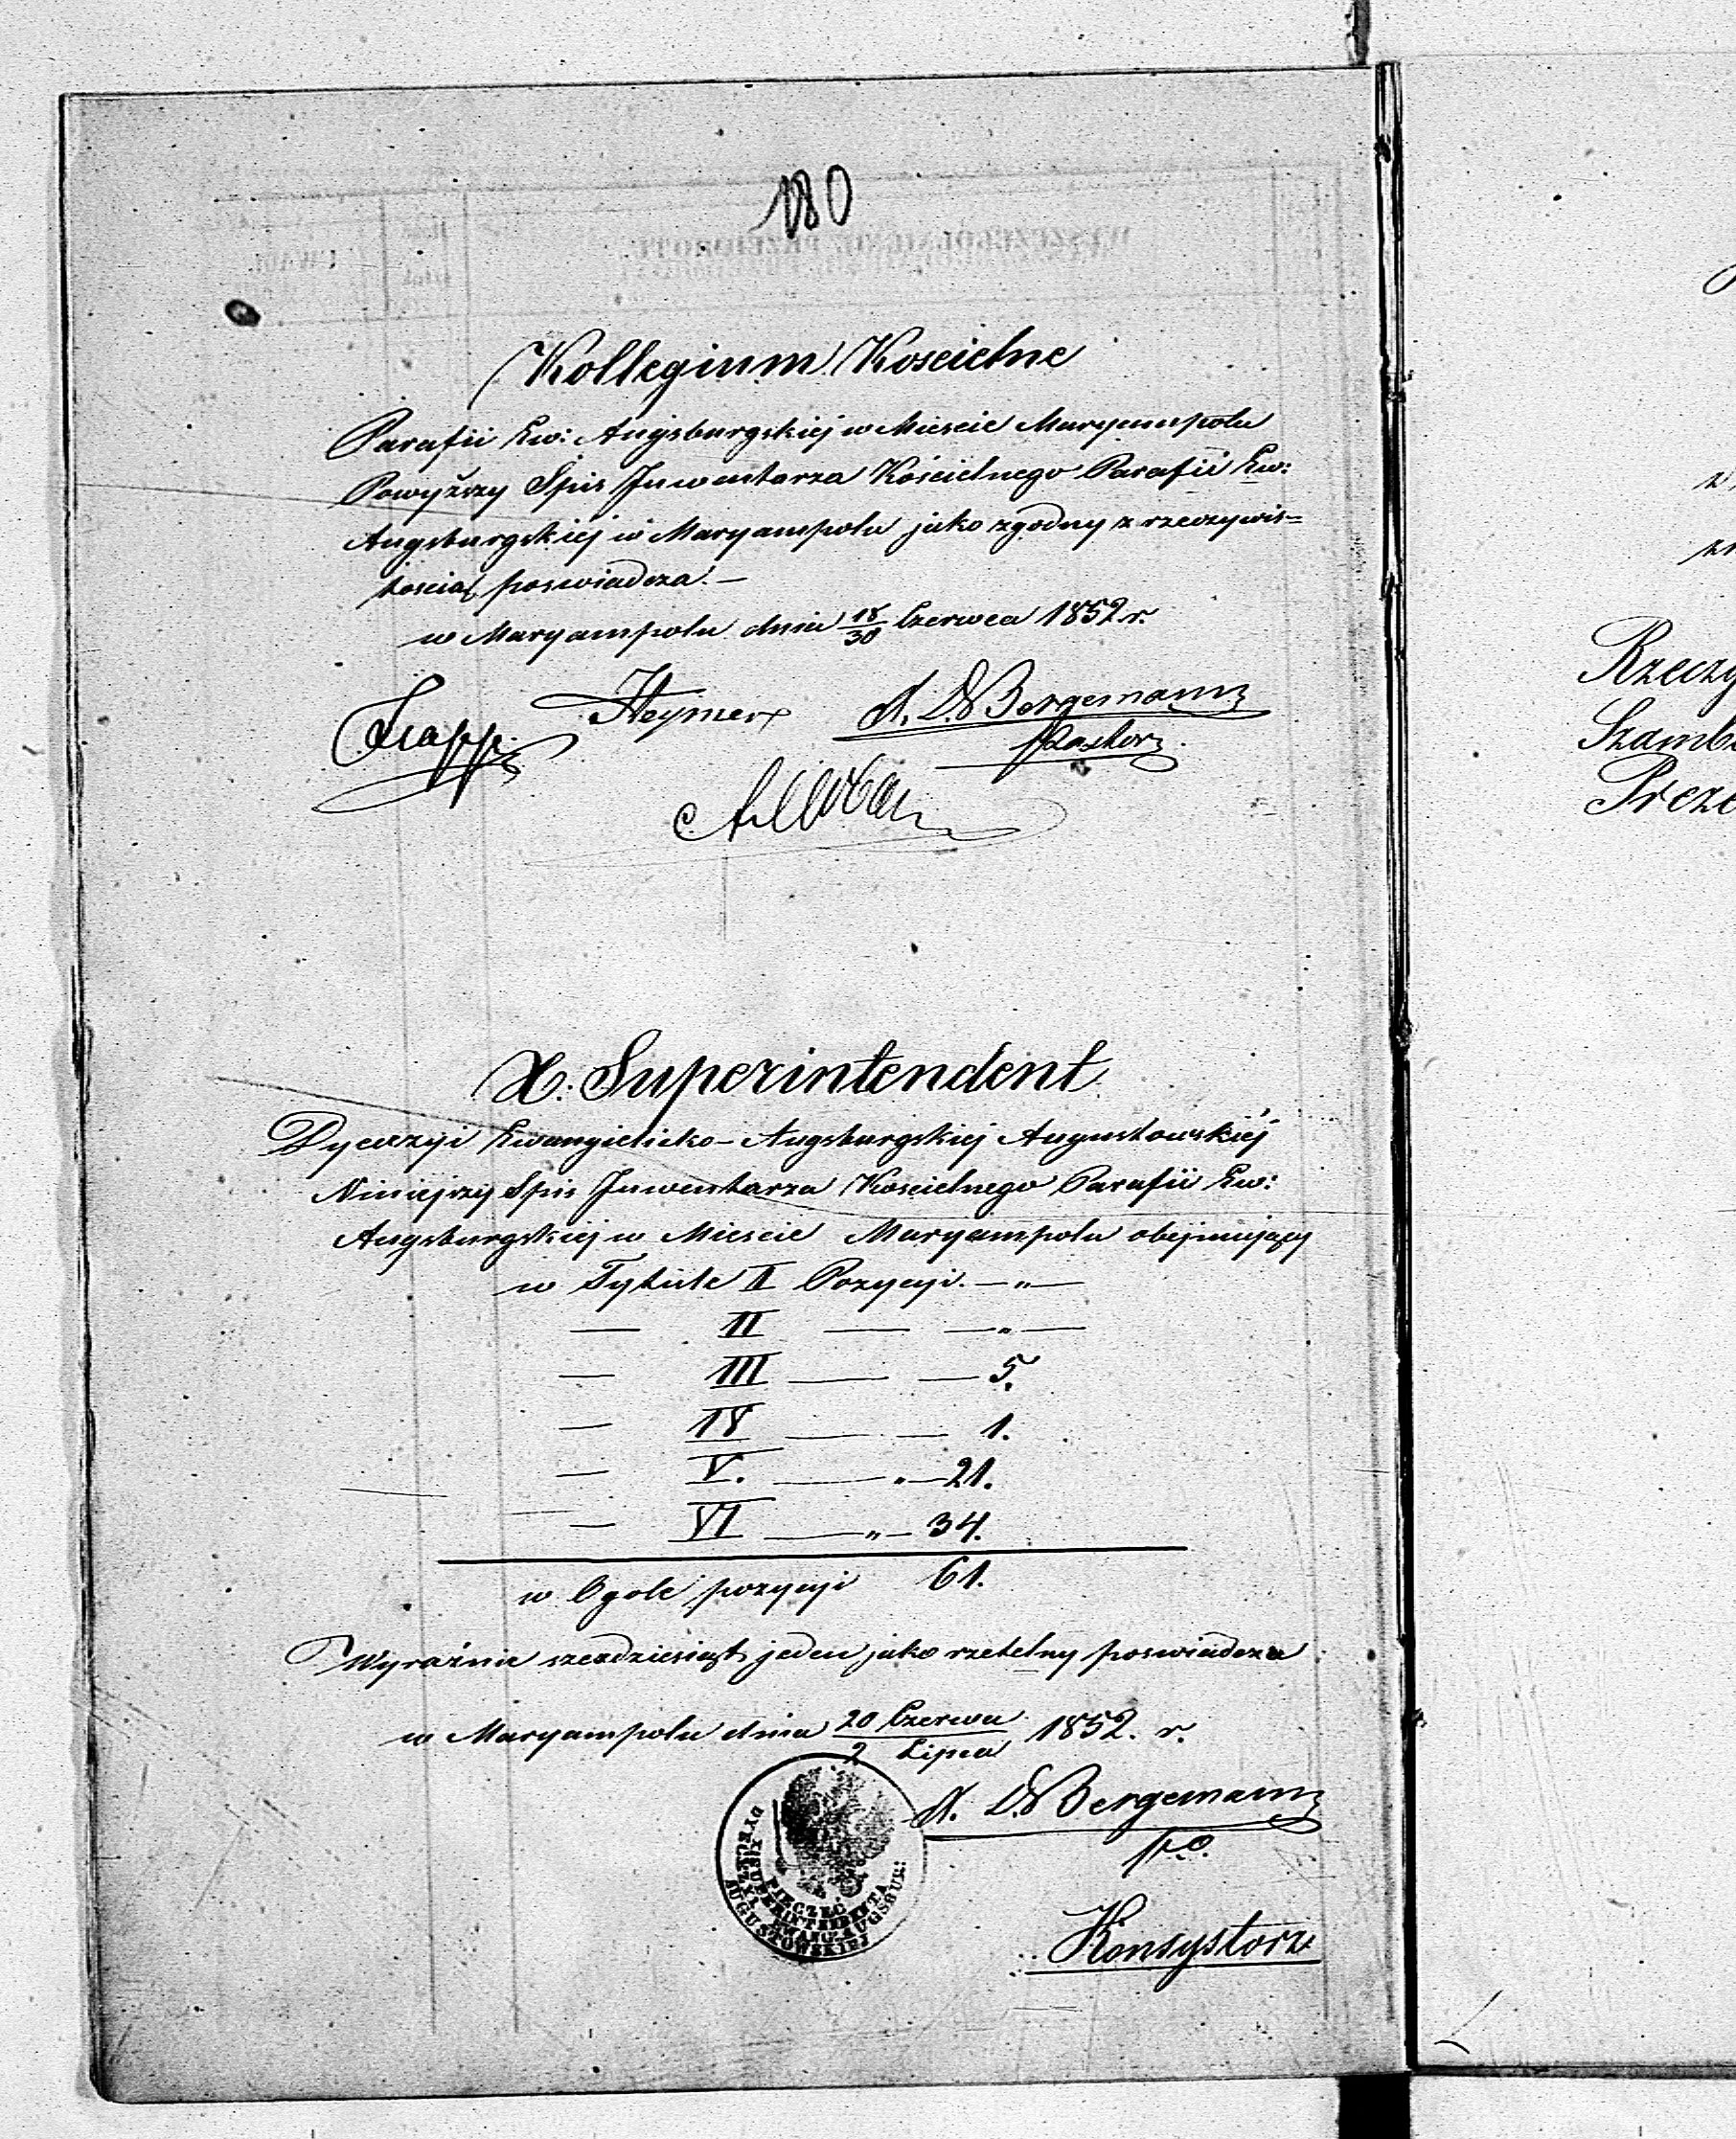 180
Kollegium Koscielne
Parafii Ew: Augsburgskiej w Miescie Maryampolu
Powyższy Spis Inwentarza Kościelnego Parafii Ew:
Augsburgskiej w Maryampolu jako zgodny z rzeczywis=
tością poswiadcza. —
w Maryampolu dnia 18/30 Czerwca 1852 r.
Heymer A. D. Bergemann
Pastor
X. Superintendent
Dyecezyi Ewangielicko-Augsburgskiej Augustowskiéj
Niniejszy Spis Inwentarza Koscielnego Parafii Ew:
Augsburgskiej w Miescie Maryampolu obejmujący
w Tytule I Pozycyi. — „ —
— II — — „ —
— III — — 5.
— IV — — 1.
— V. — „ — 21.
— VI — „ — 34.
w Ogole pozycyi 61.
Wyraźnie szesdziesiąt jeden jako rzetelny poswiadcza
w Maryampolu dnia 20 Czerwca / 2 Lipca 1852. r.
A. D. Bergemann
p.o.
PIECZĘĆ
SUPERINTENDENTA
DYECEZYI EWANG: AUGSBUR:
AUGUSTOWSKIEJ
Konsystorz